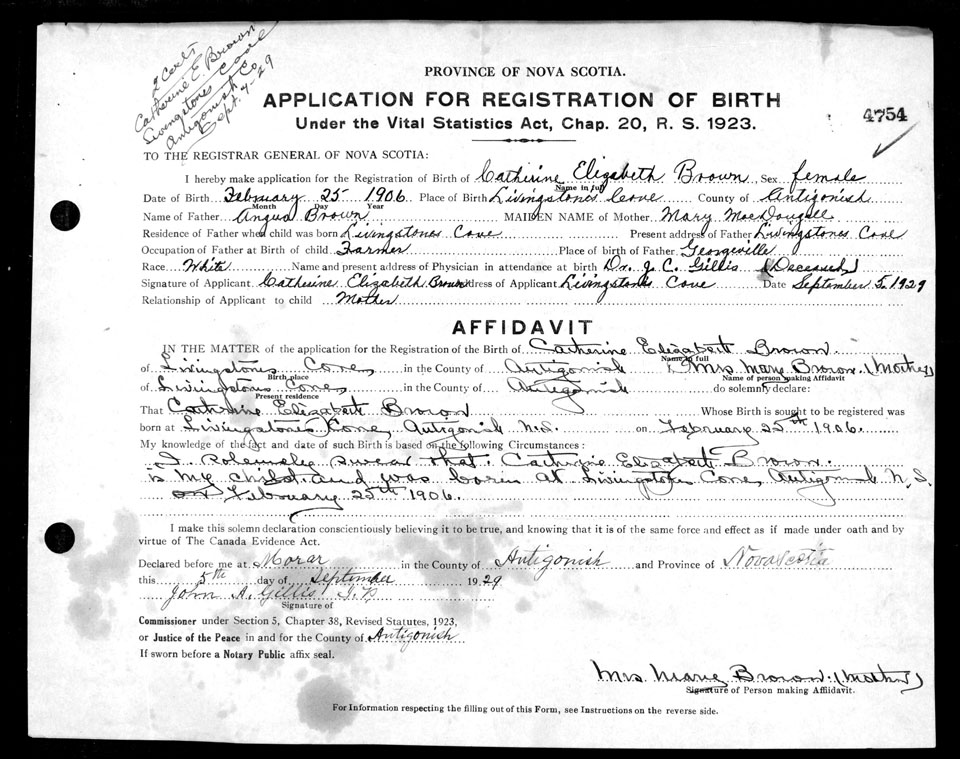 2 Certs
Catherine E. Brown
Livingstones Cove
Antigonish Co
Sept. 7-29
PROVINCE OF NOVA SCOTIA.
APPLICATION FOR REGISTRATION OF BIRTH
4754
Under the Vital Statistics Act, Chap. 20, R. S. 1923.
TO THE REGISTRAR GENERAL OF NOVA SCOTIA:
I hereby make application for the Registration of Birth of Catherine Elizabeth Brown Sex female
Name in full
Date of Birth February 25 1906 Place of Birth Livingstones Cove County of Antigonish
Month Day Year
Name of Father Angus Brown MAIDEN NAME of Mother Mary MacDougall
Residence of Father when child was born Livingstones Cove Present address of Father Livingstones Cove
Occupation of Father at Birth of child Farmer Place of birth of Father Georgeville
Race White Name and present address of Physician in attendance at birth Dr. J. C. Gillis (Deceased)
Signature of Applicant Catherine Elizabeth Brown Address of Applicant Livingstones Cove Date September 5, 1929
Relationship of Applicant to child Mother
AFFIDAVIT
IN THE MATTER of the application for the Registration of the Birth of Catherine Elizabeth Brown.
Name in full
of Livingstones Cove, in the County of Antigonish I, Mrs. Mary Brown. (Mother)
Birth place Name of person making Affidavit
of Livingstones Cove, in the County of Antigonish do solemnly declare:
Present residence
That Catherine Elizabeth Brown Whose Birth is sought to be registered was
born at Livingstones Cove, Antigonish N.S. on February 25th 1906.
My knowledge of the fact and date of such Birth is based on the following Circumstances:
I solemnly swear that. Catherine Elizabeth Brown.
is my child and was born at Livingstones Cove Antigonish N.S.
on February 25th 1906.
I make this solemn declaration conscientiously believing it to be true, and knowing that it is of the same force and effect as if made under oath and by
virtue of The Canada Evidence Act.
Declared before me at Morar in the County of Antigonish and Province of Nova Scotia
this 5th day of September 1929
John A. Gillis J.P.
Signature of
Commissioner under Section 5, Chapter 38, Revised Statutes, 1923,
or Justice of the Peace in and for the County of Antigonish
If sworn before a Notary Public affix seal.
Mrs. Mary Brown. (Mother)
Signature of Person making Affidavit.
For Information respecting the filling out of this Form, see Instructions on the reverse side.